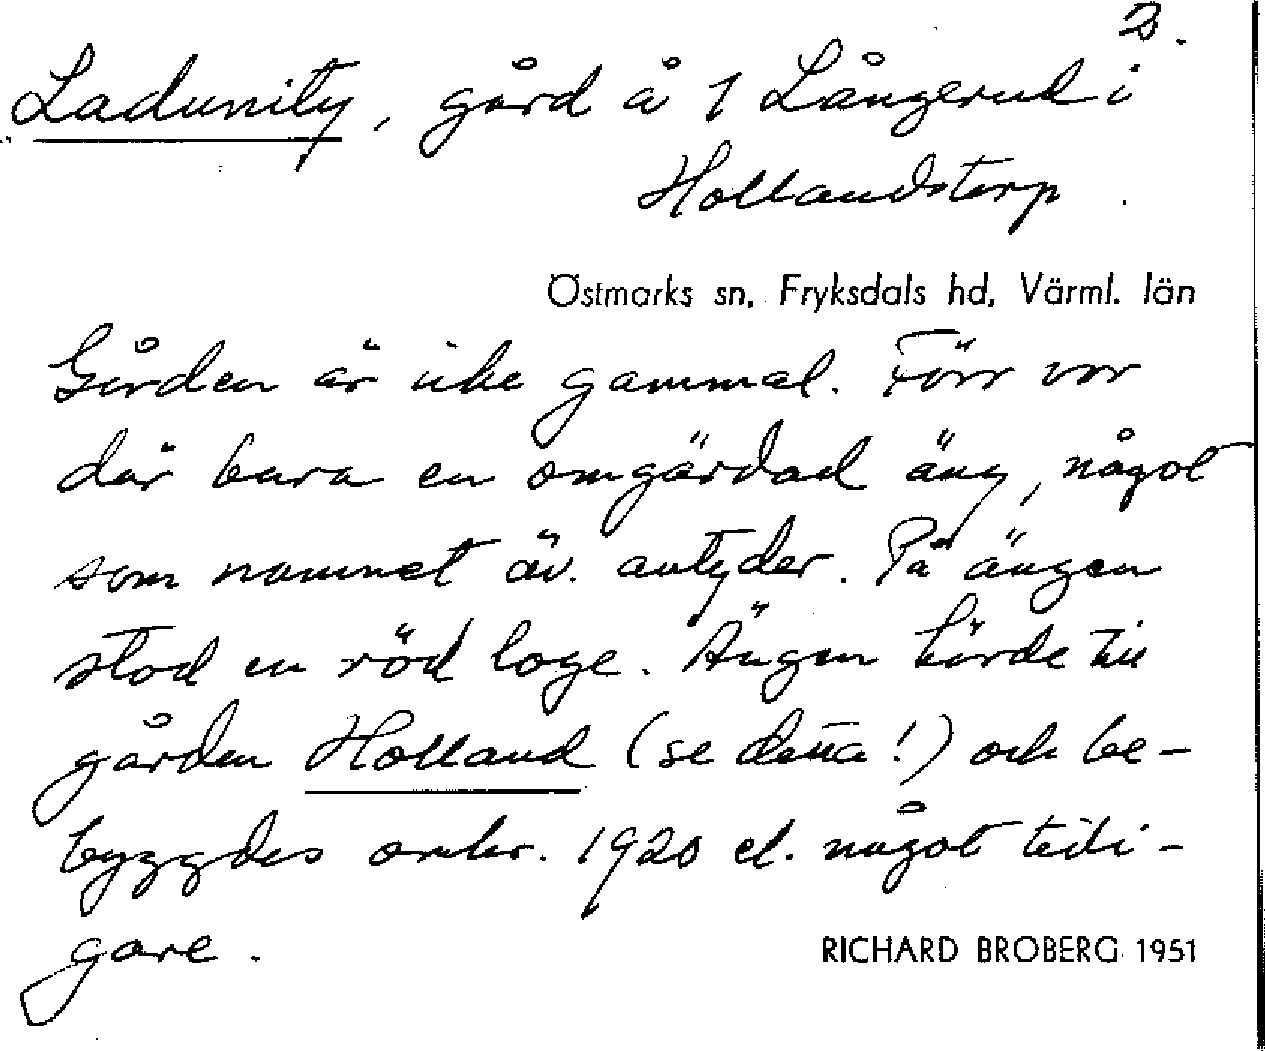 2.
Ladunity, gård å 1 Långerud i
Hollandstorp.
Östmarks sn, Fryksdals hd, Värml. län
Gården är icke gammal. Förr var
där bara en omgärdad äng, något
som namnet äv. antyder. På ängen
stod en röd loge. Ängen hörde till
gården Holland (se detta!) och be-
byggdes omkr. 1920 el. något tidi-
gare.
RICHARD BROBERG 1951